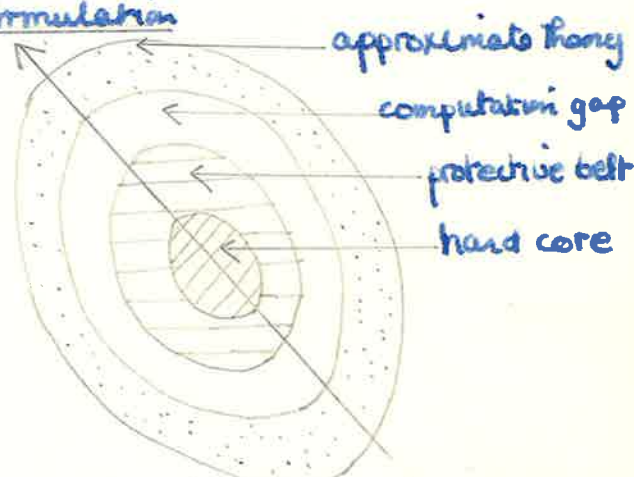 approximate theory
computation gap
protective belt
hard core